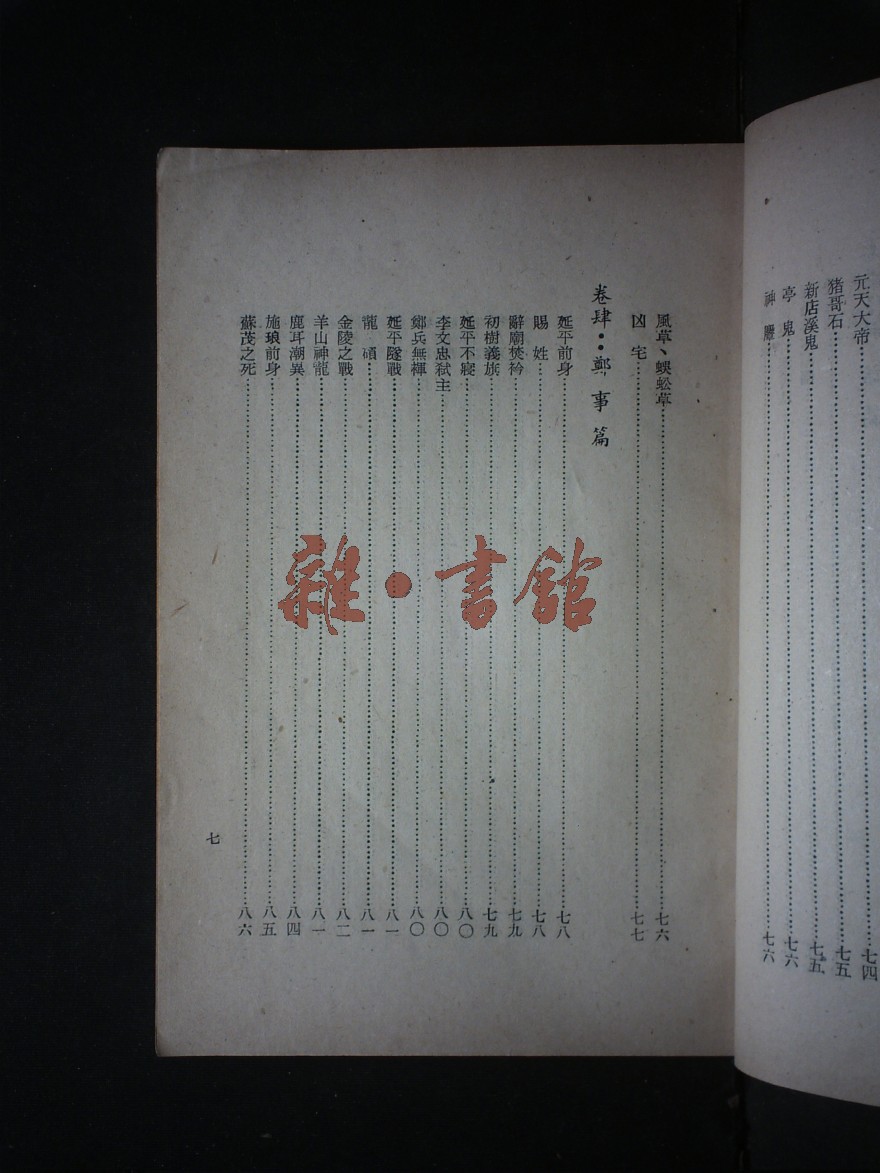 元天大帝……七四
猪哥石……七五
新店溪鬼……七五
亭鬼……七六
神雕……七六
風草、蜈蚣草……七六
凶宅……七七
卷肆：鄭事篇
延平前身……七八
賜姓……七八
辭廟焚衿……七九
初樹義族……七九
延平不寢……八〇
李文忠弒主……八〇
鄭兵無褌……八〇
延平隧戰……八一
龍碩……八一
金陵之戰……八二
羊山神龍……八一
鹿耳潮異……八四
施琅前身……八五
蘇茂之死……八六
七
雜·書館